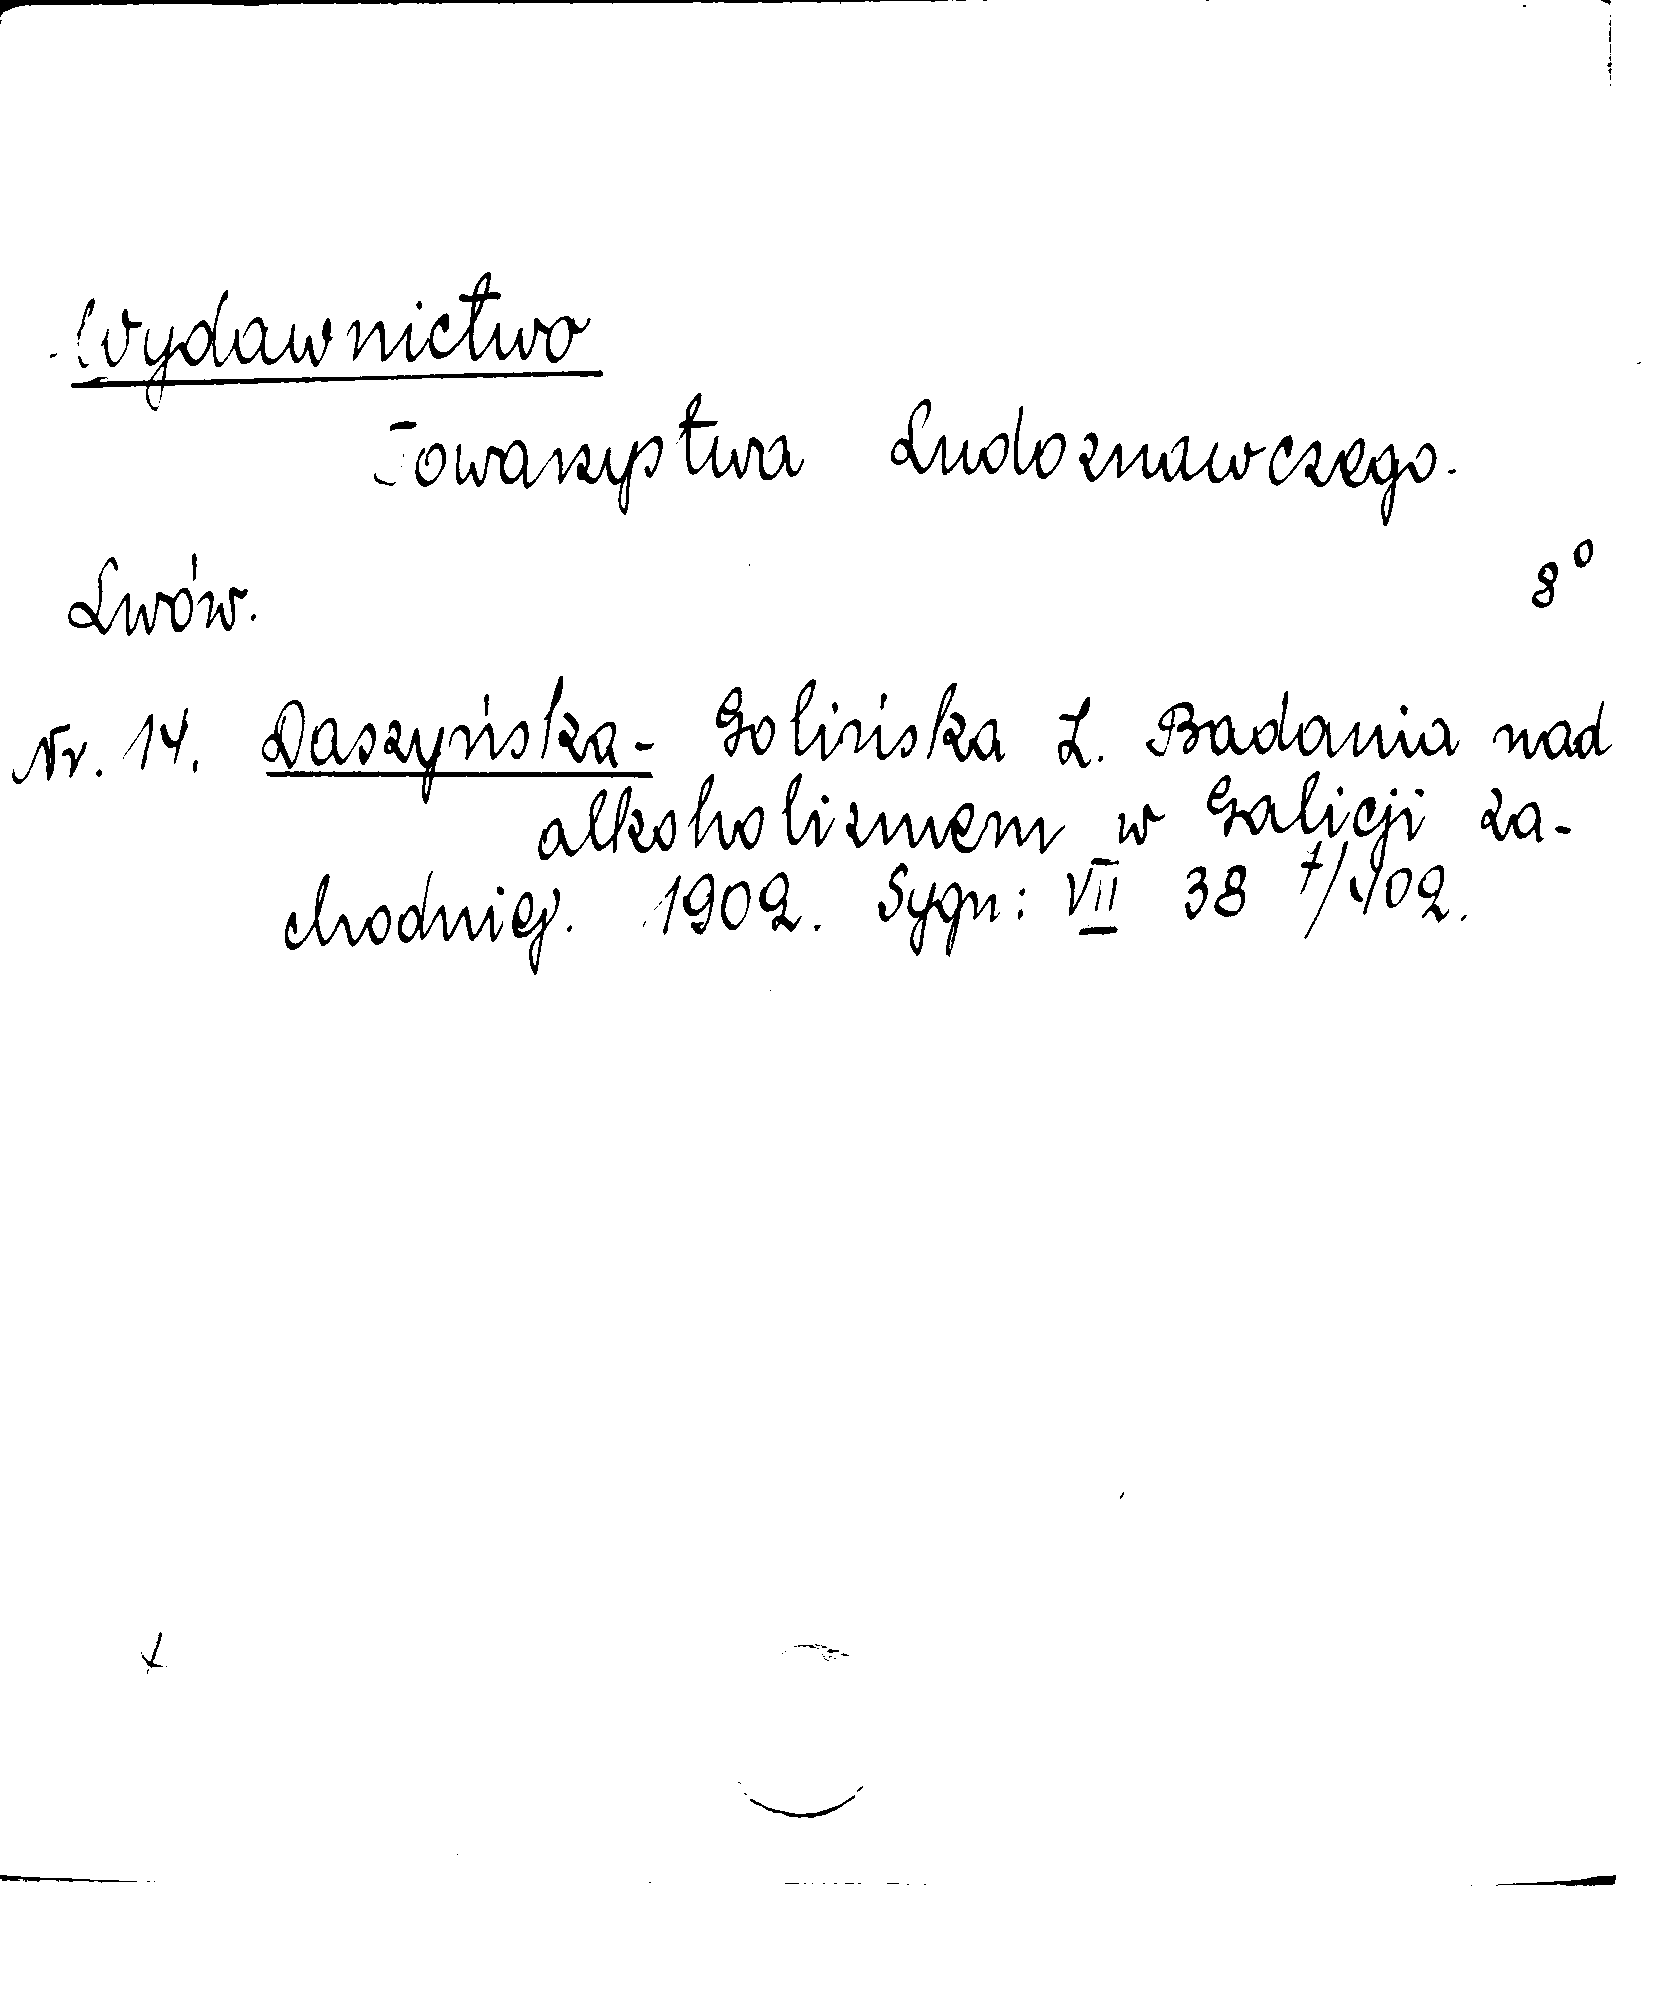 Wydawnictwo
Towarzystwa Ludoznawczego.
Lwów. 8°
Nr. 14. Daszyńska- Golińska Z. Badania nad
alkoholizmem w Galicji za-
chodniej. 1902. Sygn: VII 38 †/902.